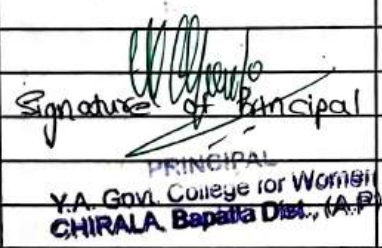 Signature of Principal
PRINCIPAL
Y.A. Govt. College for Women
CHIRALA, Bapatla Dist., (A.P)